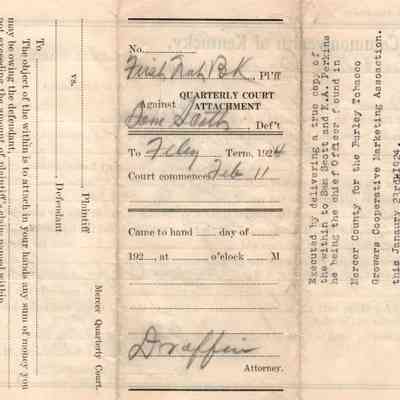 No.
First Nat B.K., Pl'ff
Against QUARTERLY COURT
ATTACHMENT
Sam Scott, Def't
To Feby Term, 1924
Court commences Feb 11
Came to hand day of
192 , at o'clock M
Draffin
Attorney.
Executed by delivering a true copy of
the within to Sam Scott and E.A. Perkins
he being the chief Officer found in
Mercer County for the Burley Tobacco
Growers Cooperative Marketing Assoaction.
this January 23rd 1924.
Mercer Quarterly Court.
Plaintiff
vs.
, Defendant
To
The objet of the within is to attach in your hands any sum of money you
may be owing the defendant
not exceeding the amount of plaintiff's claim named within